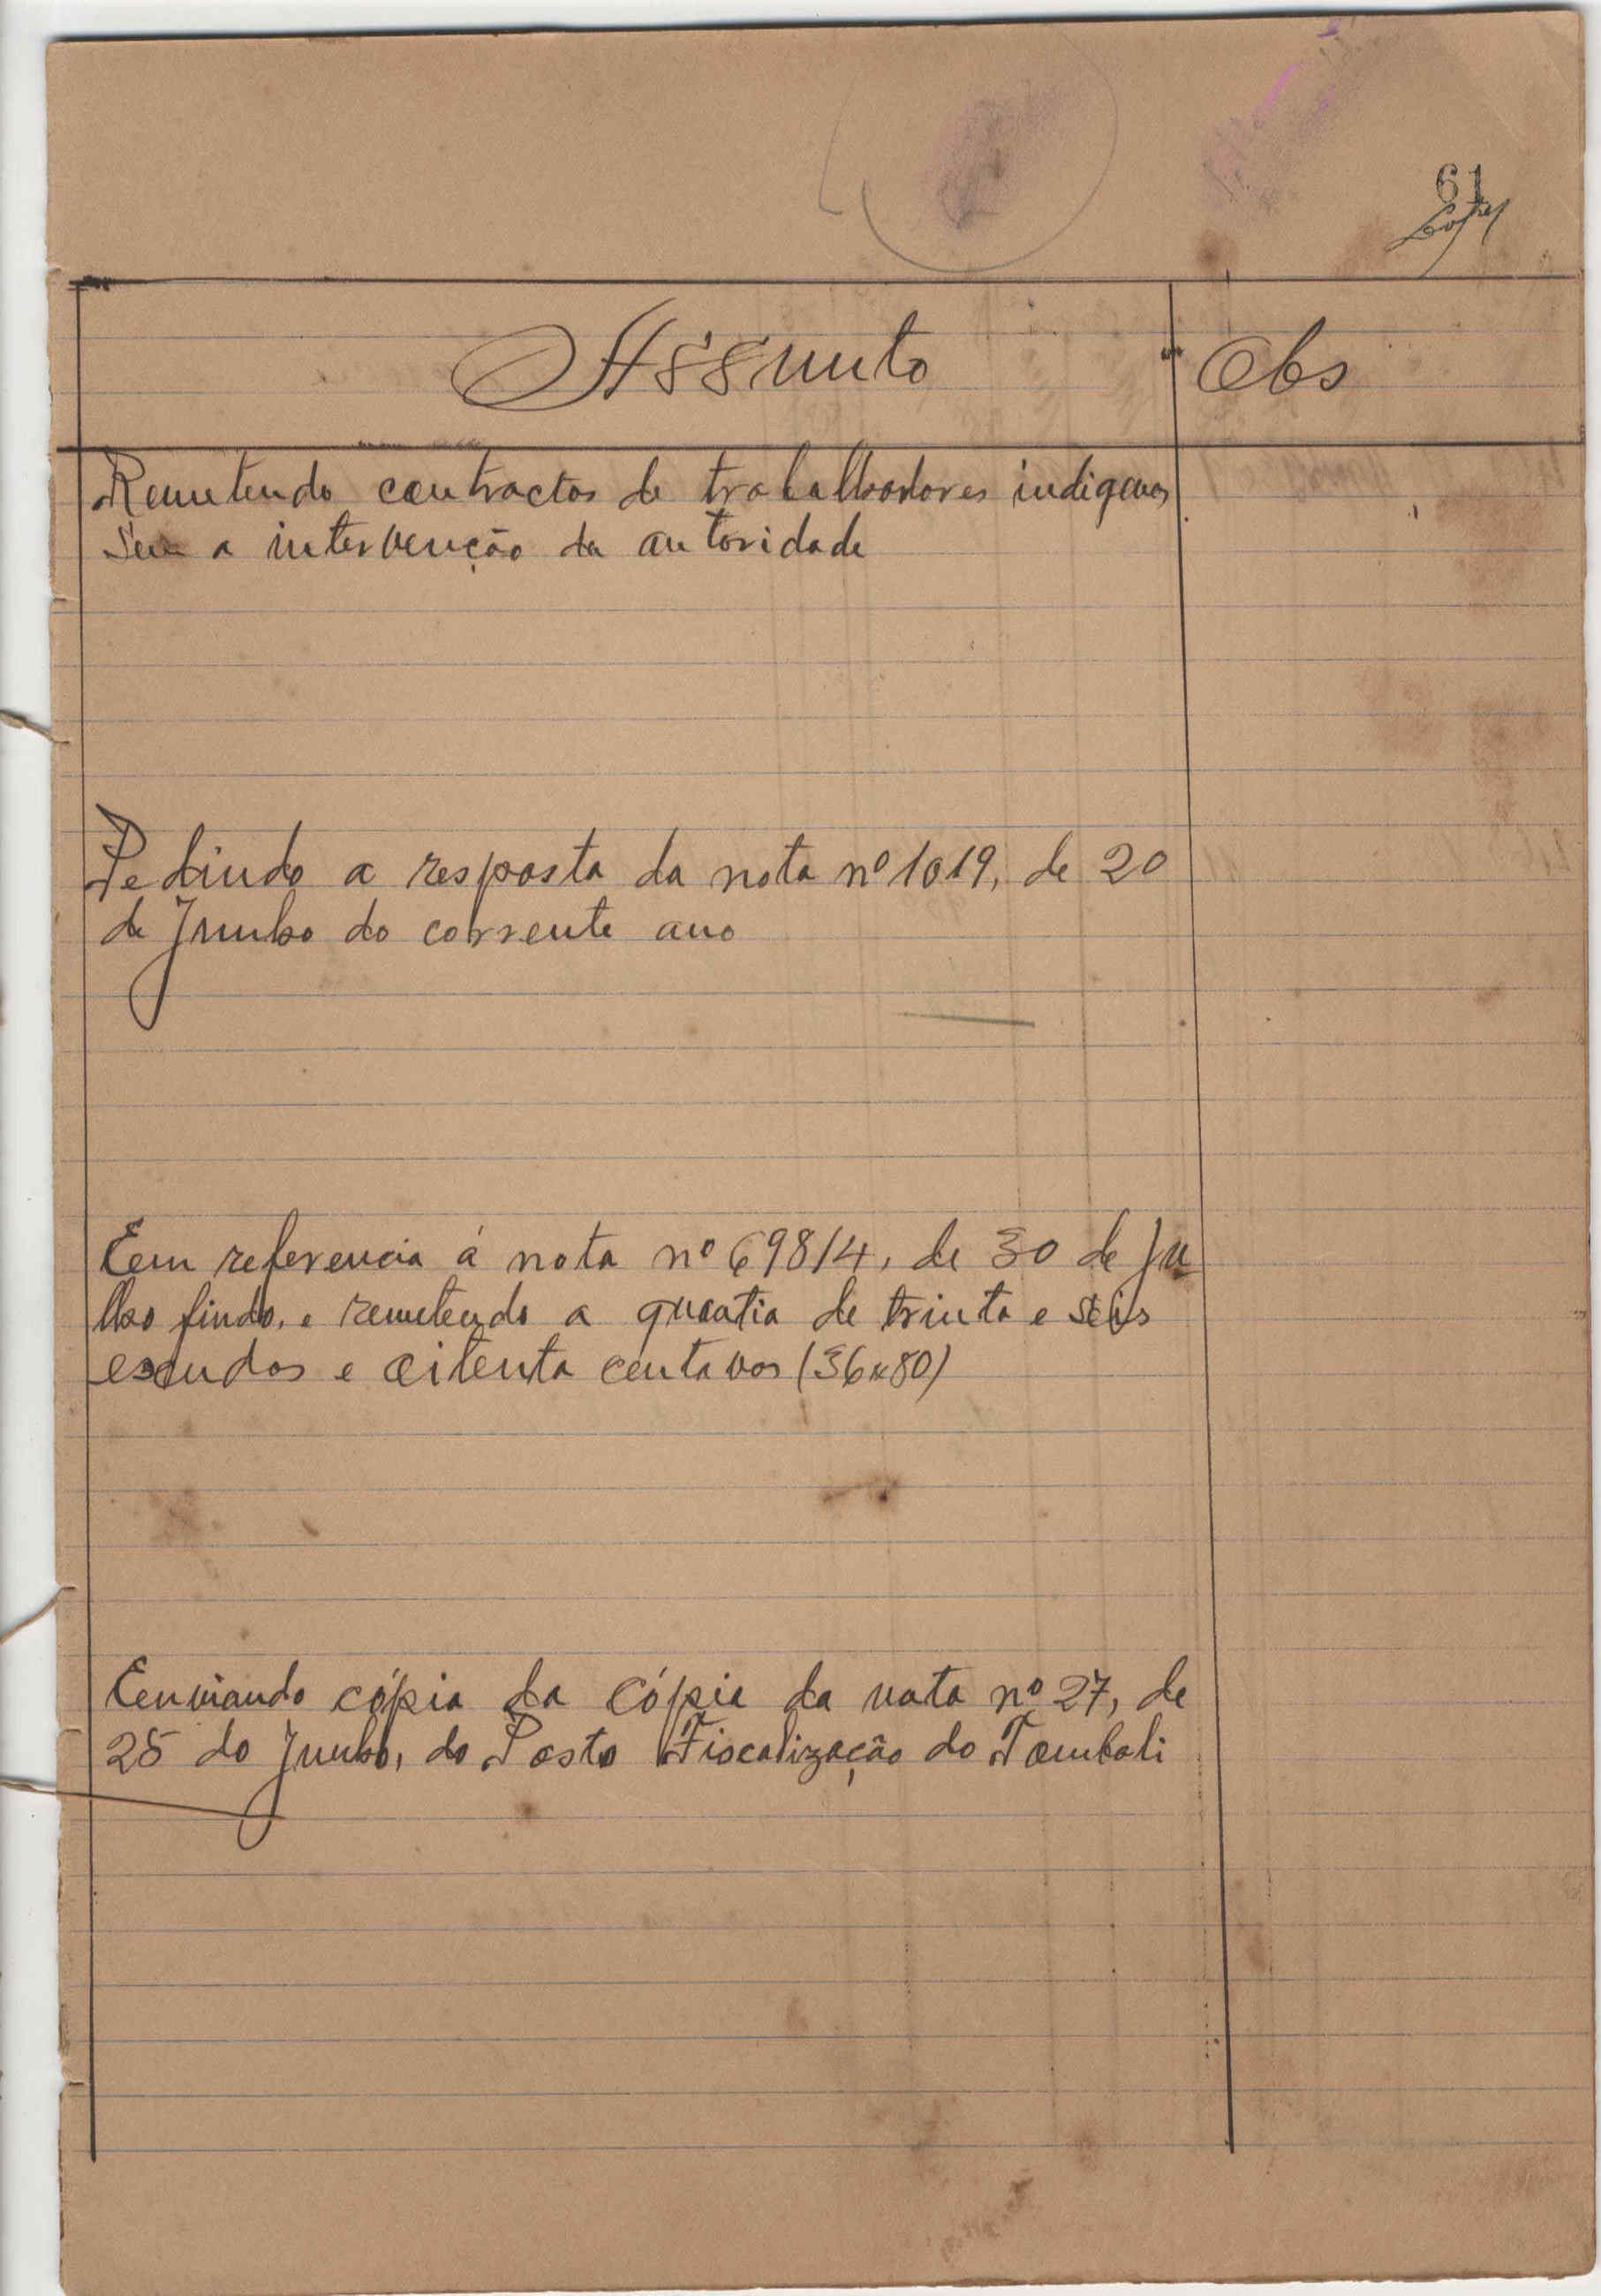 61
Assunto Obs
Remetendo contractos de trabalhadores indigenas
sem a intervenção da autoridade
Pedindo a resposta da nota nº 1019, de 20
de Junho do corrente ano
Em referencia á nota nº 698/4, de 30 de Ju
lho findo, e remetendo a quantia de trinta e seis
escudos e oitenta centavos (36$80)
Enviando cópia da cópia da nota nº 27, de
25 do Junho, do Posto Fiscalização do Tombali